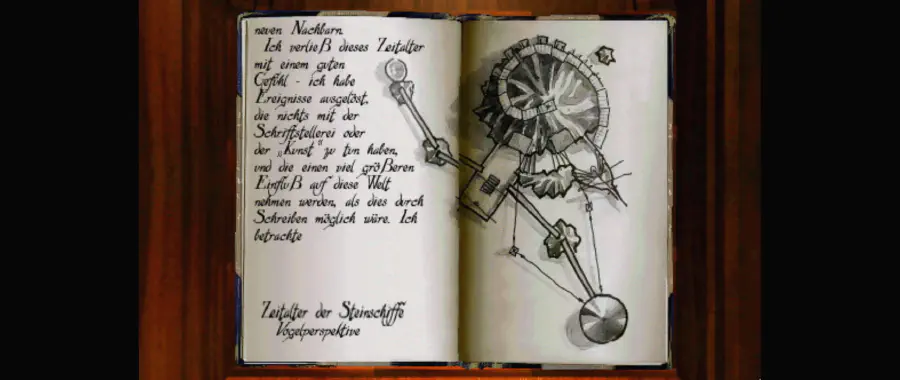 neuen Nachbarn.
Ich verließ dieses Zeitalter
mit einem guten
Gefühl - ich habe
Ereignisse ausgelöst,
die nichts mit der
Schriftstellerei oder
der „Kunst" zu tun haben,
und die einen viel größeren
Einfluß auf diese Welt
nehmen werden, als dies durch
Schreiben möglich wäre. Ich
betrachte
Zeitalter der Steinschiffe
Vogelperspektive